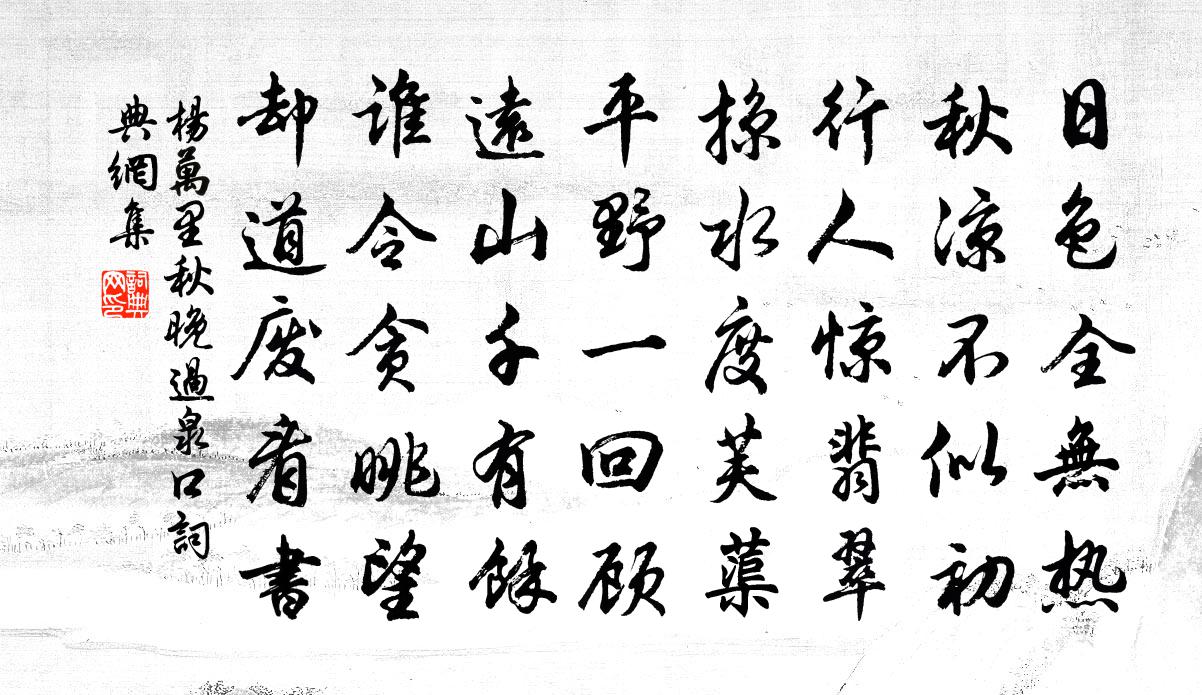 日色全無热
秋涼不似初
行人惊翡翠
掠水度芙蕖
平野一回顾
遠山千有餘
誰令貪眺望
却道废看書
楊萬里秋晚過泉口詞
典網集
詞典
网印